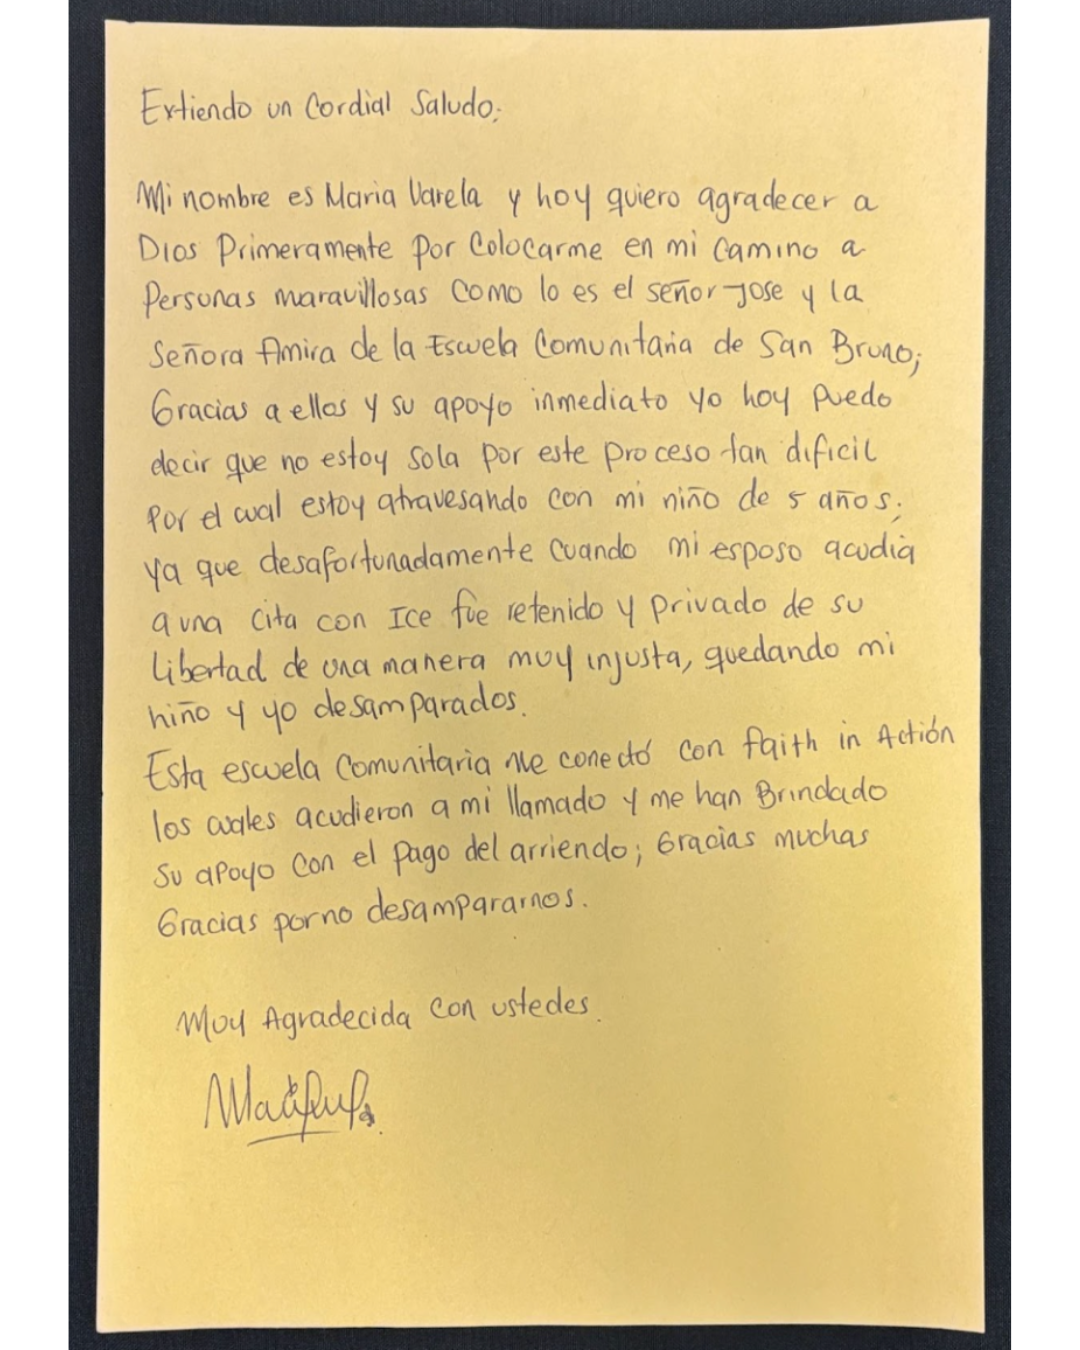 Extiendo un Cordial Saludo;
Mi nombre es Maria Varela y hoy quiero agradecer a
Dios Primeramente por Colocarme en mi Camino a
Personas maravillosas Como lo es el señor Jose y la
Señora Amira de la Escuela Comunitaria de San Bruno;
Gracias a ellos y su apoyo inmediato yo hoy Puedo
decir que no estoy Sola por este Proceso tan dificil
Por el cual estoy atravesando con mi niño de 5 años;
ya que desafortunadamente Cuando mi esposo acudia
a una Cita con Ice fue retenido y Privado de su
Libertad de una manera muy injusta, quedando mi
niño y yo desamparados.
Esta escuela Comunitaria me conectó con faith in Actión
los cuales acudieron a mi llamado y me han Brindado
Su apoyo Con el Pago del arriendo; Gracias muchas
Gracias por no desampararnos.
Muy Agradecida Con ustedes.